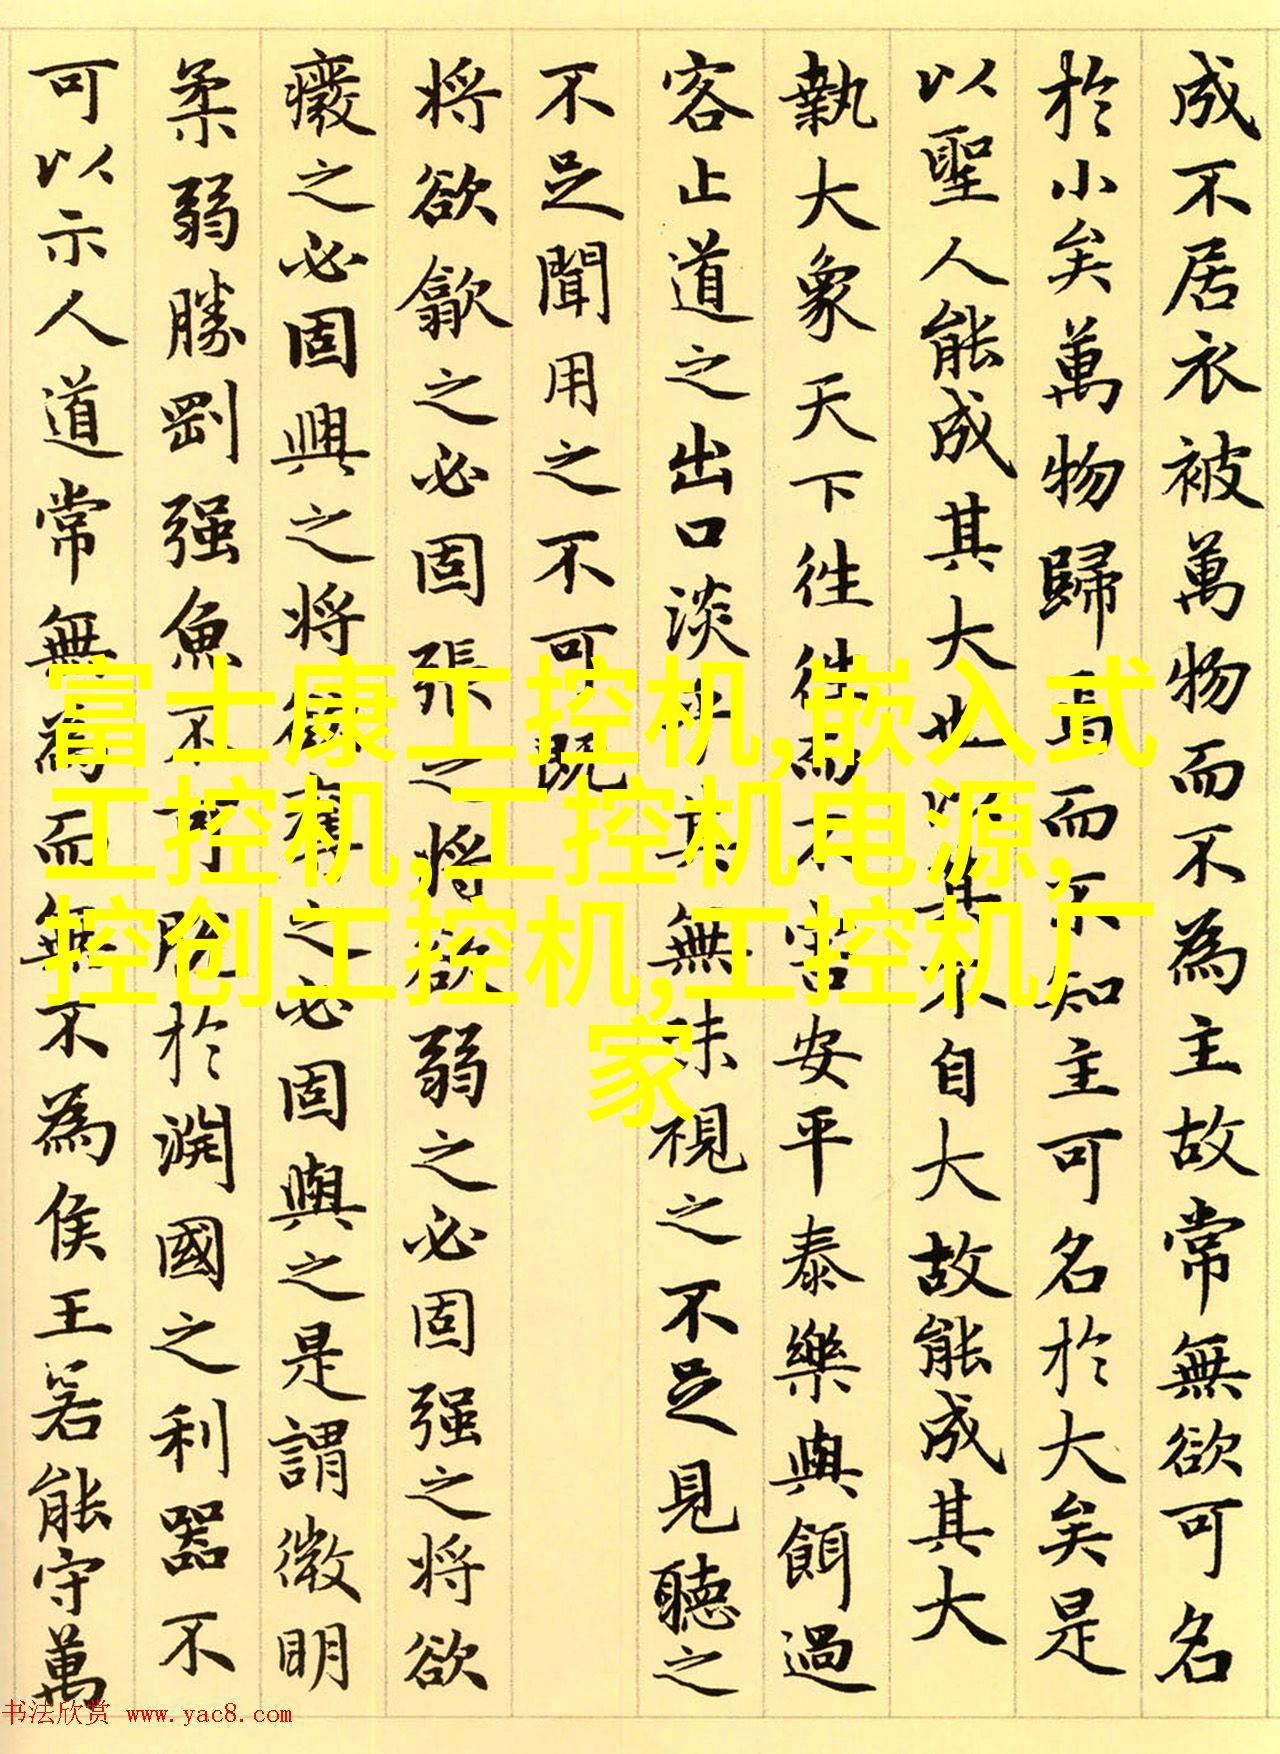 成不居衣被萬物而不為主故常無欲可名
於小矣萬物歸焉而不知主可名於大矣是
以聖人能成其大也以其不自大故能成其大
執大象天下往往而不害安平泰樂與餌過
客止道之出口淡乎其無味視之不足見聽之
不足聞用之不可既
将欲歙之必固張之将欲弱之必固强之将欲
癈之必固興之将欲奪之必固與之是謂微明
柔弱勝剛强魚不可脫於淵國之利器不
可以示人道常無為而無不為侯王若能守萬
富士康工控机,嵌入式
工控机,工控机电源,
控创工控机,工控机厂
家
书法欣赏 www.yac8.com